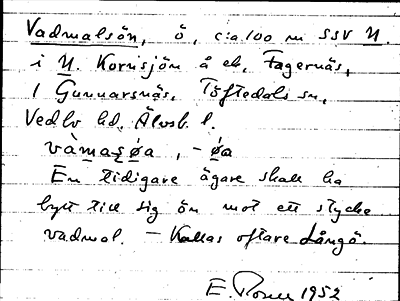 Vadmalsön, ö, c:a 100 m SSV N.
i N. Kornsjön å ek. Fagernäs,
1 Gunnarsnäs, Töftedals sn,
Vedbo hd. Älvsb. l.
vàmaşø̀a, -ǿa
En tidigare ägare skall ha
bytt till sig ön mot ett stycke
vadmal. – Kallas oftare Långö.
E. 1952